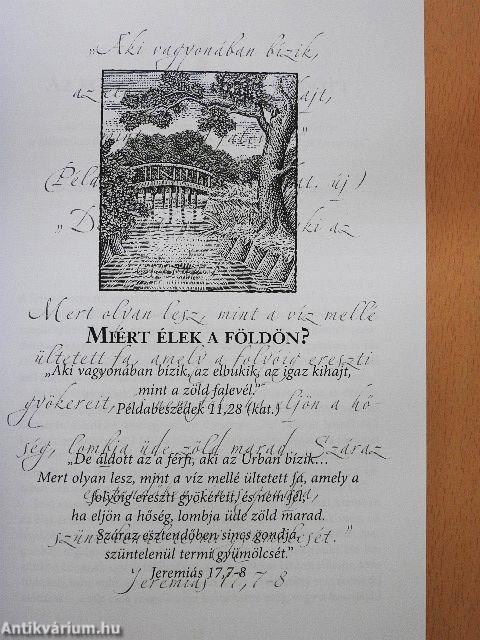 „Aki vagyonában bizik,
az
hajt,
(Péld
kat. új)
„D
aki az
Mert olyan lesz, mint a víz mellé
MIÉRT ÉLEK A FÖLDÖN?
ültetett fa, amely a folyóig ereszti
„Aki vagyonában bízik, az elbukik, az igaz kihajt,
mint a zöld falevél.”
gyökereit, ljön a hő-
Példabeszédek 11,28 (kat.)
ség, lombja üde zöld marad. Száraz
„De áldott az a férfi, aki az Úrban bízik…
Mert olyan lesz, mint a víz mellé ültetett fa, amely a
folyóig ereszti gyökereit, és nem fél,
ha eljön a hőség, lombja üde zöld marad.
Száraz esztendőben sincs gondja,
szüntelenül termi gyümölcsét.”
Jeremiás 17,7-8
Jeremiás 17,7-8
Antikvárium.hu